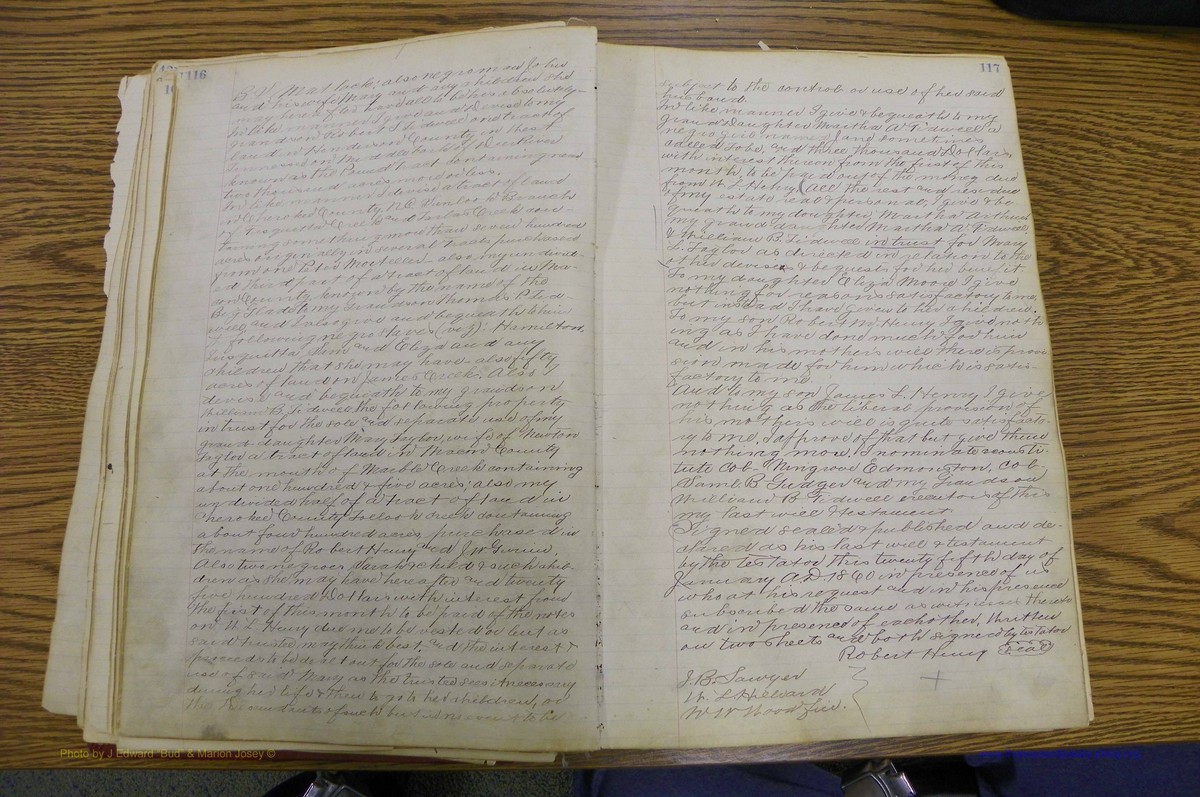 116
B. H. Matlock; also negro man John
and his wife Mary and any children she
may hereafter have all to be hers absolutely
In like manner I give and devise to my
grandson Robert Tidwell one tract of
land in Henderson County in West
Tennessee on Middle Fork of Deer River
known as the Pound Tract containing near
two thousand acres more or less.
In like manner I devise a tract of land
in Cherokee County, N.C. Branch
of Tusquittee Creek and Creek con-
taining something more than seven hundred
acres originally in several tracts purchased
from one Peter also my undivid-
ed third part of a tract of land in Ma-
con County, known by the name of the
Ben to my Grandson Thomas P. Tid-
well and I also give and bequeath to him
following negro slaves (viz): Hamilton,
Tusquitta, Sam and Eliza and any
children that she may have also fifty
acres of land on James Creek. Also I
devise and bequeath to my grandson
William B. Tidwell the following property
in trust for the sole and separate use of my
grand daughter Mary Taylor, wife of Newton
Taylor a tract of land in Macon County
at the mouth of Creek containing
about one hundred & five acres; also my
undivided half of a tract of land in
Cherokee County Creek containing
about four hundred acres, purchased in
the name of Robert Henry and J. W.
Also two negroes Sarah & child & such chil-
dren as she may have hereafter and twenty
five hundred Dollars with interest from
the first of this month to be paid of the notes
on W. L. Henry due me to be vested or but as
said trustee may think best, and the interest &
proceeds to be dealt out for the sole and separate
use of said Mary as the trustee sees it necessary
during her life & then to go to her children, or
the remainder of such but in no event to be
117
subject to the control or use of her said
husband.
In like manner I give & bequeath to my
grand Daughter Martha A. Tidwell a
negro girl named and sometimes
called Tobe, and three thousand Dollars,
with interest thereon from the first of this
month, to be paid out of the money due
from W. L. Henry. All the rest and residue
of my estate real & personal, I give & be-
queath to my daughter, Martha Arthur
my grand daughter Martha A. Tidwell
& William B. Tidwell in trust for Mary
L. Taylor as directed in relation to the
other devises & bequests for her benefit.
To my daughter Eliza Moore I give
nothing for reasons satisfactory to me,
but instead I have given to her children.
To my son Robert M. Henry I give noth-
ing as I have done much for him
and in his mother's will there is prov-
sion made for him which is satis-
factory to me.
And to my son James L. Henry I give
nothing as the liberal provision of
his mothers will is quite satisfacto-
ry to me, I approve of that but give them
nothing more. I nominate & consti-
tute Col. Ningrove Edmonston, Col.
Saml. B. Gudger and my Grandson
William B. Tidwell executors of this
my last will & testament.
Signed sealed & published and de-
clared as his last will & testament
by the testator this twenty fifth day of
January AD 1860 in presence of us
who at his request and in his presence
subscribed the same as witness thereto
and in presence of each other, written
on two sheets and both signed by testator
Robert Henry Seal
J. B. Sawyer
W. L. Hilliard
W. W. Woodfin.
Photo by J Edward "Bud" & Marion Josey ©